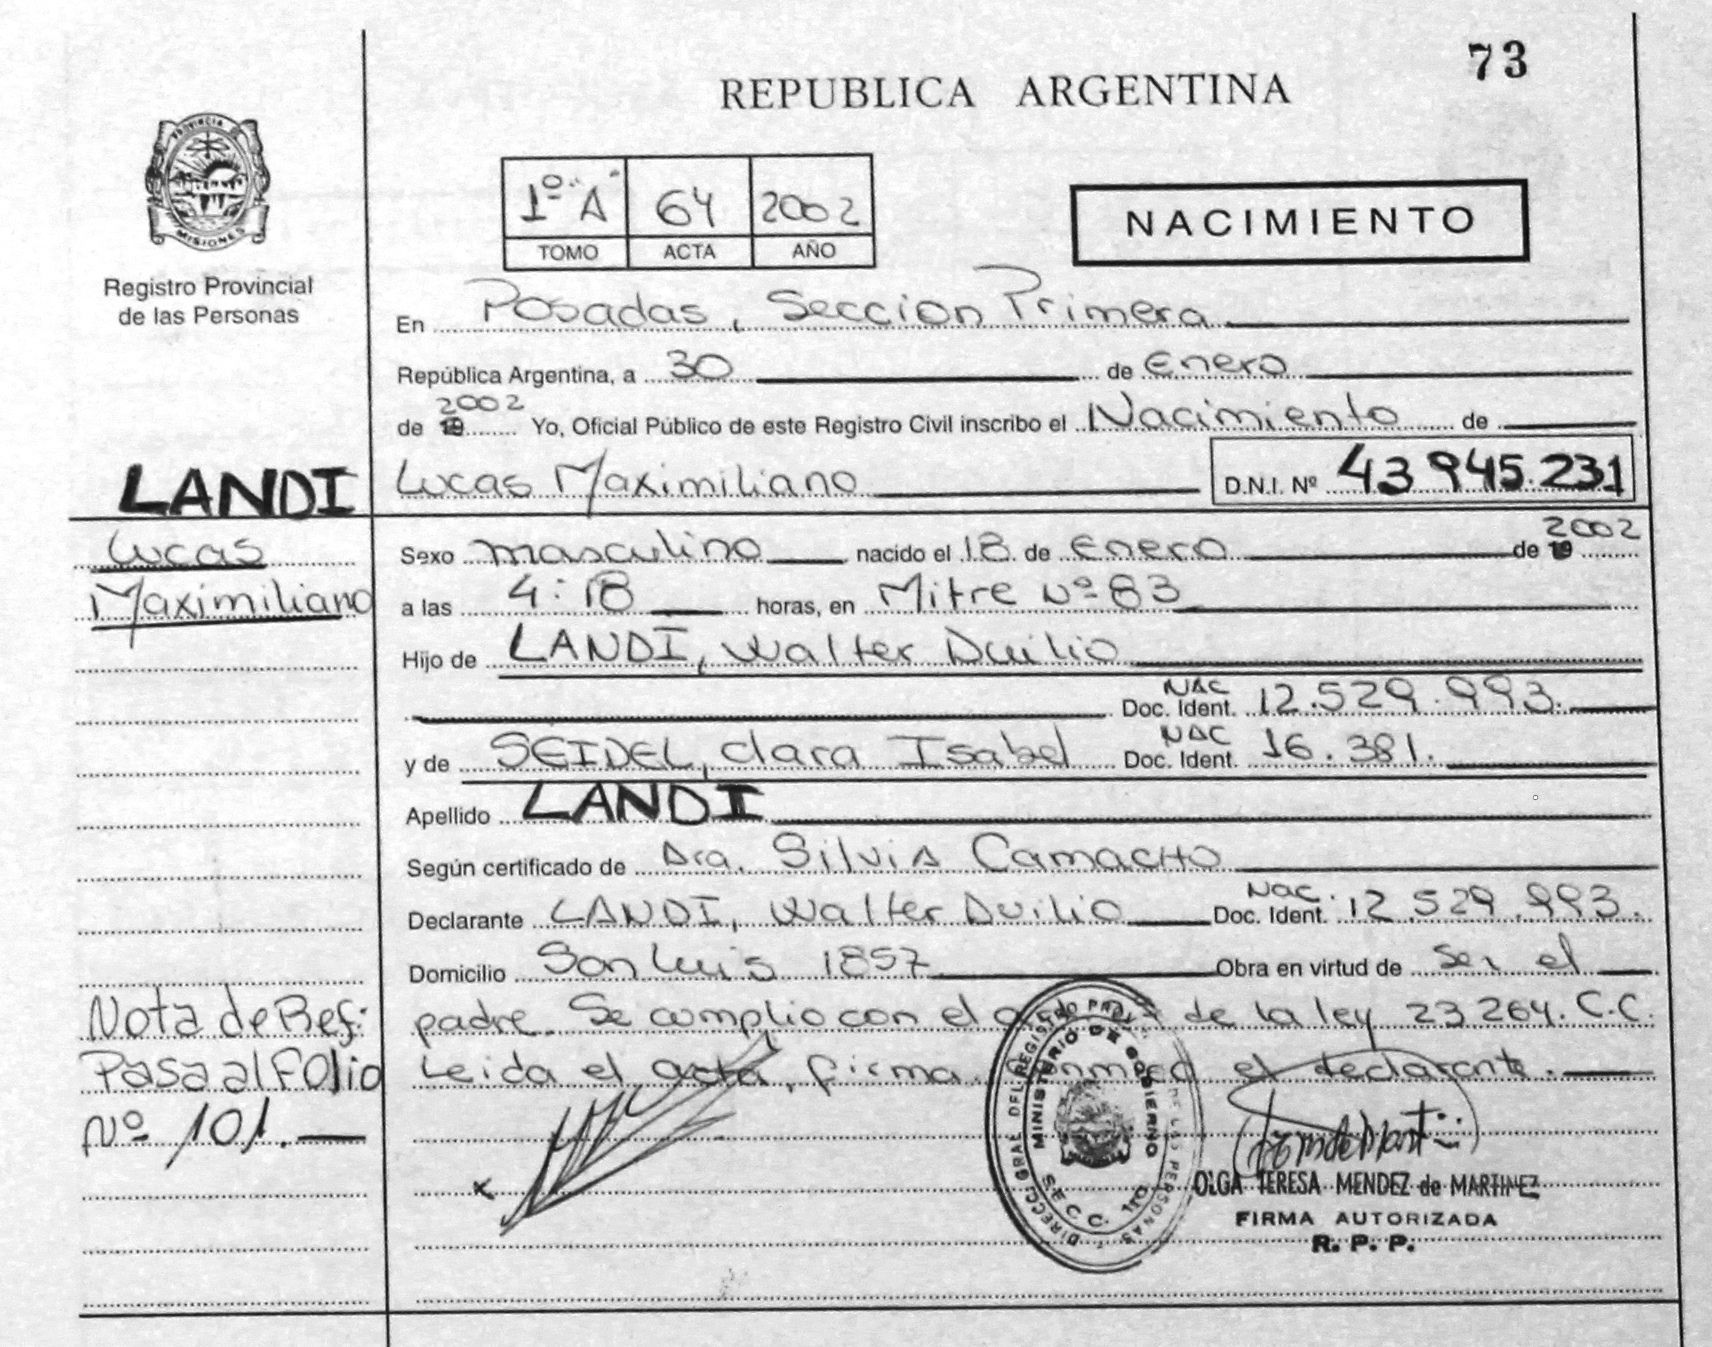 73
REPUBLICA ARGENTINA
PROVINCIA DE
MISIONES
Registro Provincial
de las Personas
1º "A" 64 2002
TOMO ACTA AÑO
NACIMIENTO
En Posadas, Seccion Primera
República Argentina, a 30 de Enero
de 19 2002 Yo, Oficial Público de este Registro Civil inscribo el Nacimiento de
LANDI
Lucas
Maximiliano
Lucas Maximiliano D.N.I. Nº 43.945.231
Sexo masculino nacido el 18 de Enero de 19 2002
a las 4:18 horas, en Mitre Nº 83
Hijo de LANDI, Walter Duilio
Nac Doc. Ident. 12.529.993.
y de SEIDEL, Clara Isabel Nac Doc. Ident. 16.381.
Apellido LANDI
Según certificado de Dra. Silvia Camacho
Declarante LANDI, Walter Duilio Nac. Doc. Ident. 12.529.993.
Domicilio San Luis 1857 Obra en virtud de ser el
padre. Se cumplio con el de la ley 23.264. C.C.
Leida el acta, firma el declarante.
Nota de Ref:
Pasa al Folio
Nº 101.
x
MINISTERIO DE GOBIERNO
SECC. 1ra
OLGA TERESA MENDEZ de MARTINEZ
FIRMA AUTORIZADA
R. P. P.